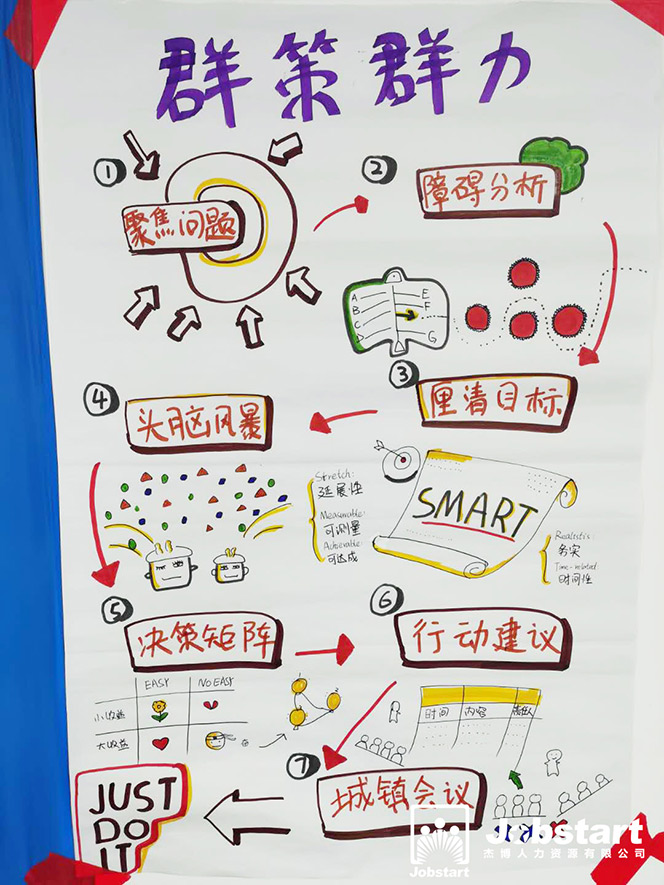 群策群力
①
聚焦问题
②
障碍分析
A
B
C
D
E
F
G
③
厘清目标
④
头脑风暴
SMART
Stretch:
延展性
Measurable:
可测量
Achievable:
可达成
Realistic:
务实
Time-related
时间性
⑤
决策矩阵
EASY NO EASY
小收益
大收益
⑥
行动建议
时间 内容 责任人
⑦
城镇会议
JUST
DO
IT
Jobstart
Jobstart
杰博人力资源有限公司